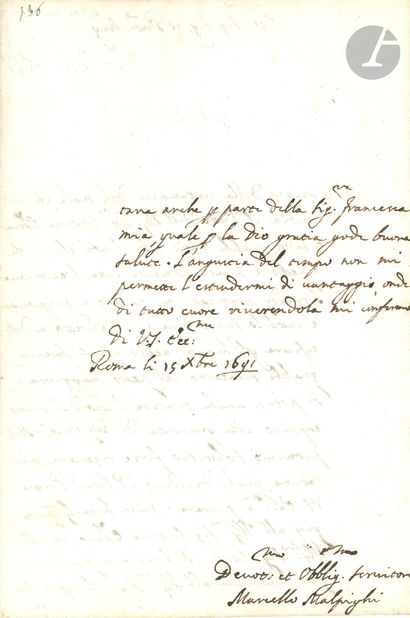 136
cara anche p parte della Sig.ra Francesca
mia, quale p la Dio gratia gode buona
salute. L'angustia del tempo non mi
permette l'estendermi di vantaggio, onde
di tutto cuore riverendola mi confermo
di V.S. Ecc:ma
Roma li 15 Xbre 1691
Devot.mo et Obblig.mo Servitore
Marcello Malpighi